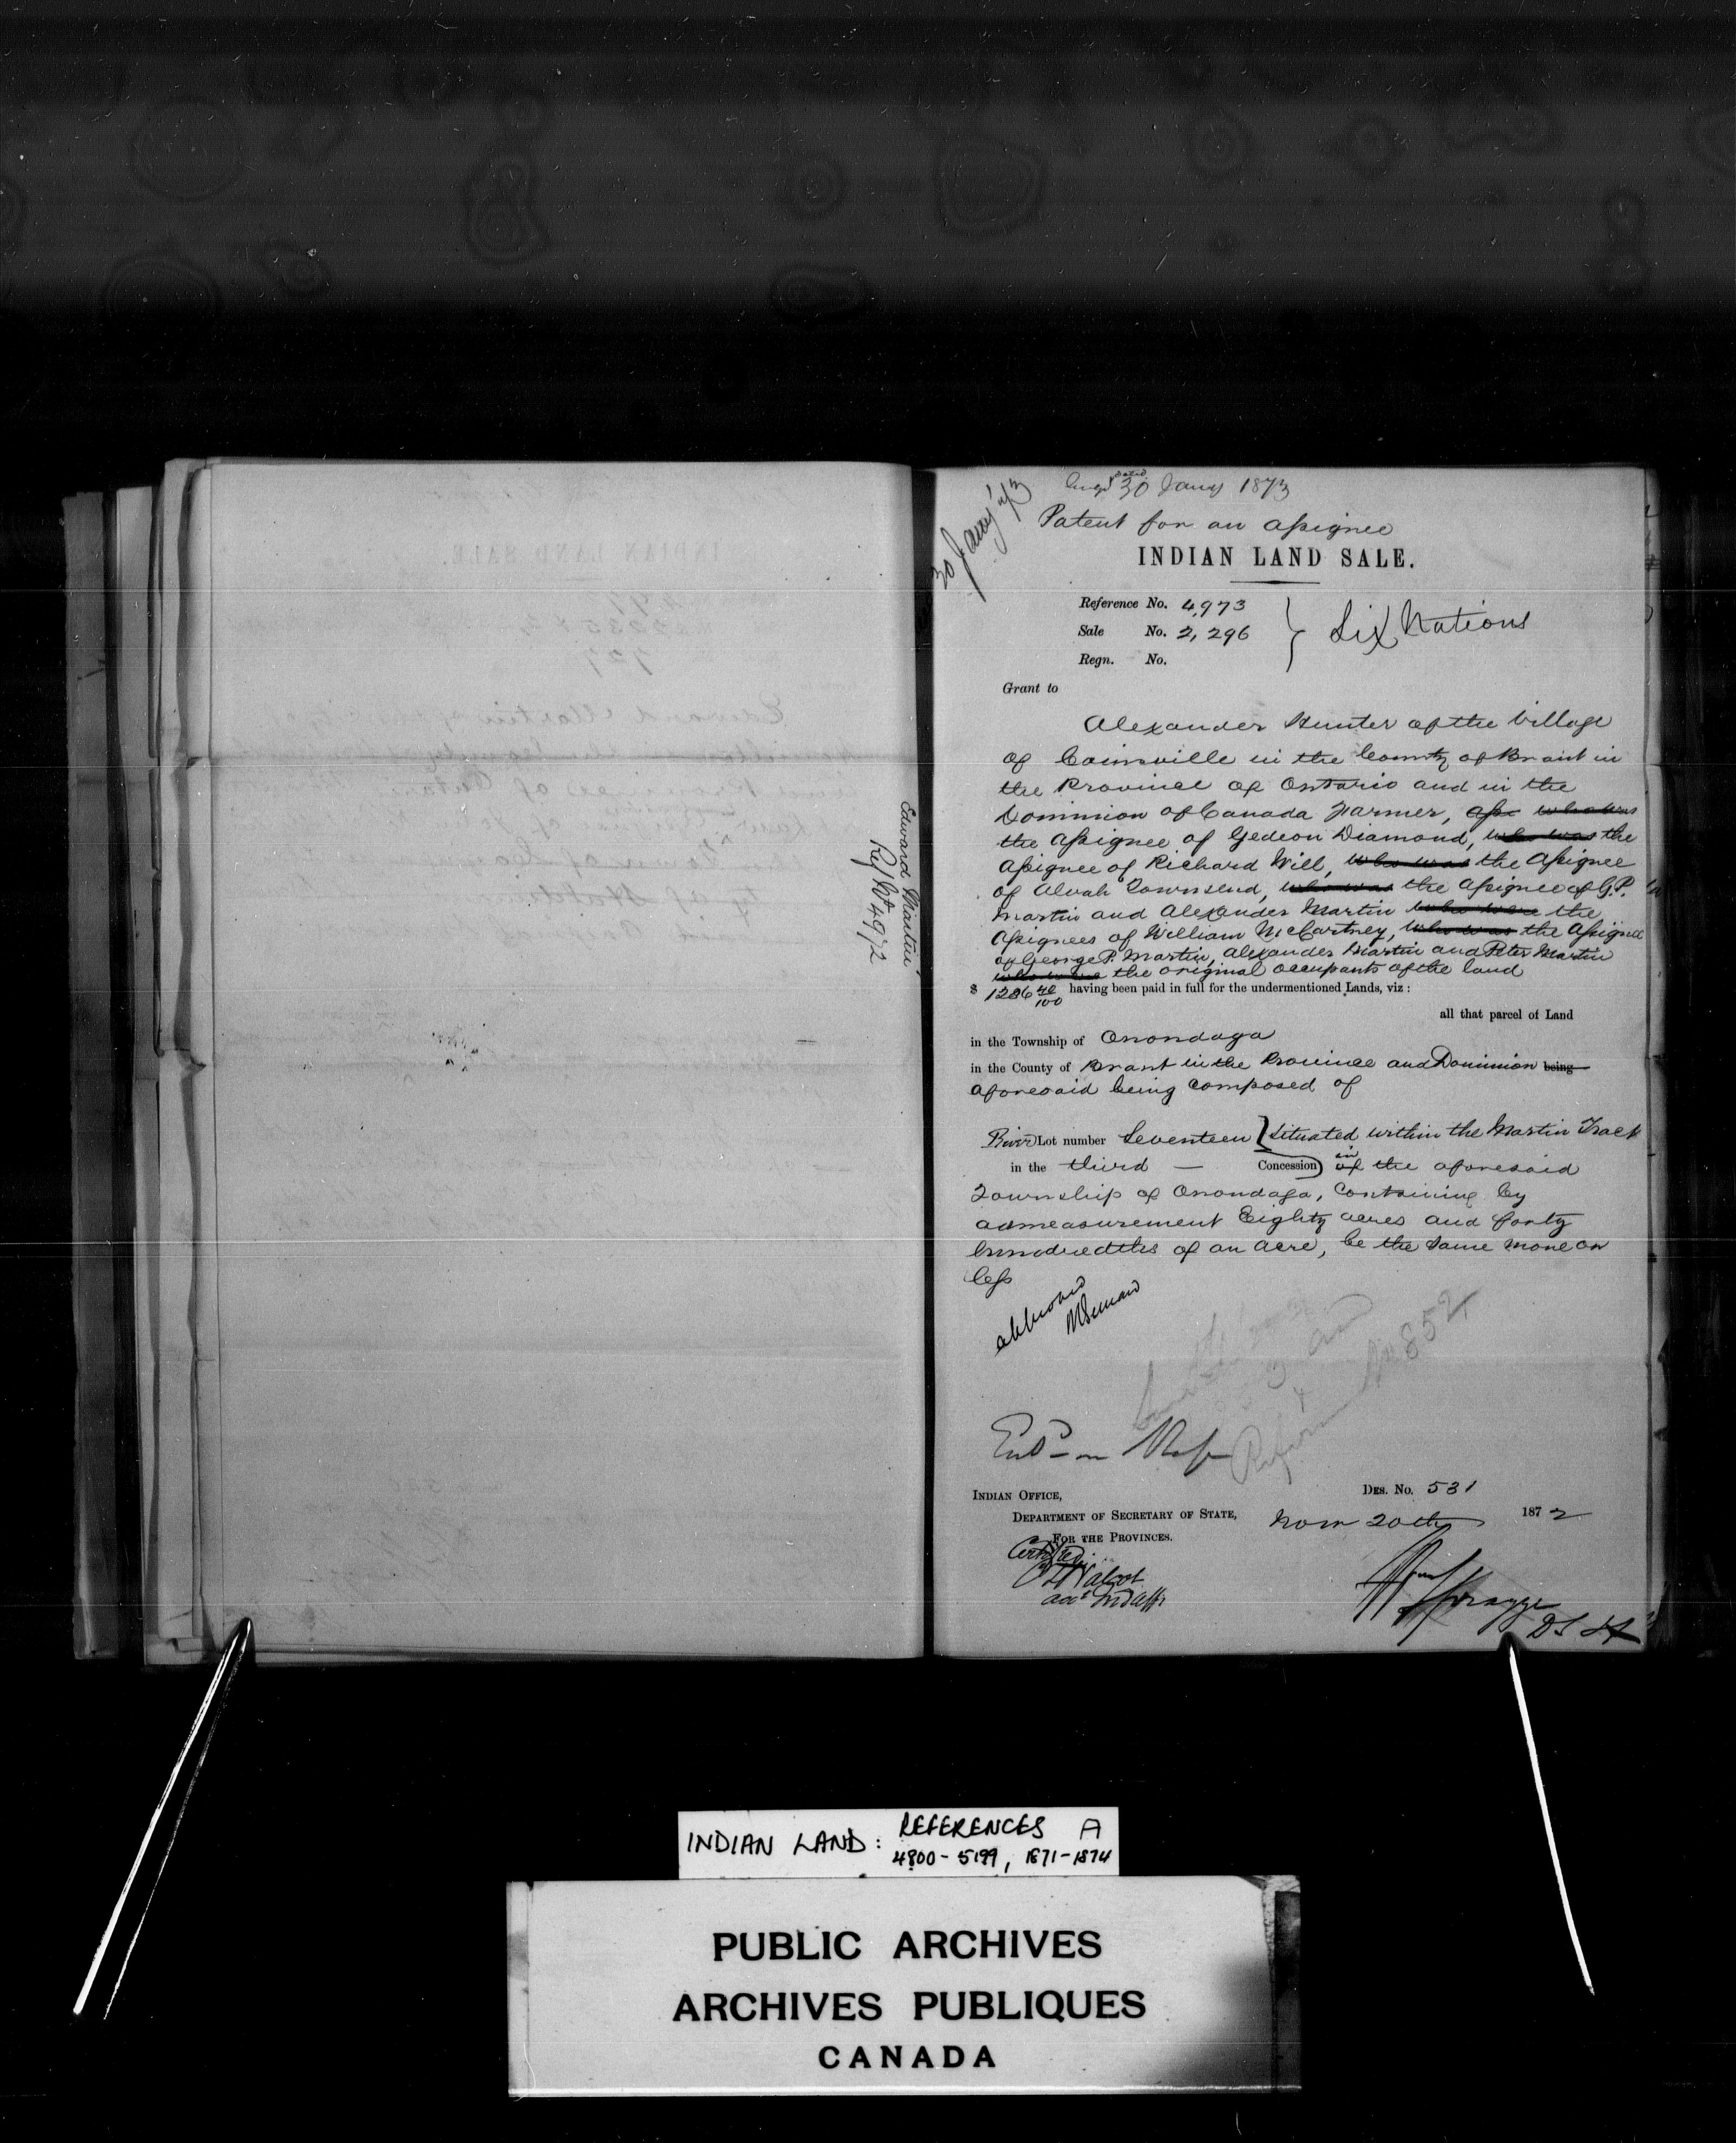 Edward Martin
Ref No 4972
30 Jany '73
dated
30 Jany 1873
Patent for an Assignee
INDIAN LAND SALE.
Reference No. 4,973
Sale No. 2,296
Six Nations
Regn. No.
Grant to
Alexander Hunter of the Village
of Cainsville in the County of Brant in
the Province of Ontario and in the
Dominion of Canada Farmer, ass who was
the Assignee of Gedeon Diamond, who was the
Assignee of Richard Will, who was the Assignee
of Alvah Townsend, who was the Assignee of G.P.
Martin and Alexander Martin who were the
Assignees of William McCartney, who was the Assignee
of George P. Martin, Alexander Martin and Peter Martin
who were the original occupants of the land
$ 1286 40/100 having been paid in full for the undermentioned Lands, viz :
all that parcel of Land
in the Township of Onondaga
in the County of Brant in the Province and Dominion being
aforesaid being composed of
River Lot number Seventeen (Situated within the Martin Track
in the third — Concession) in of the aforesaid
Township of Onondaga, Containing by
admeasurement Eighty acres and forty
hundredths of an acre, be the same more or
less
No 852
DES. No. 531
INDIAN OFFICE,
DEPARTMENT OF SECRETARY OF STATE,
FOR THE PROVINCES.
Novr 20th 1872
Certified
Wm Spragge
INDIAN LAND: REFERENCES A
4800-5199, 1871-1874
PUBLIC ARCHIVES
ARCHIVES PUBLIQUES
CANADA